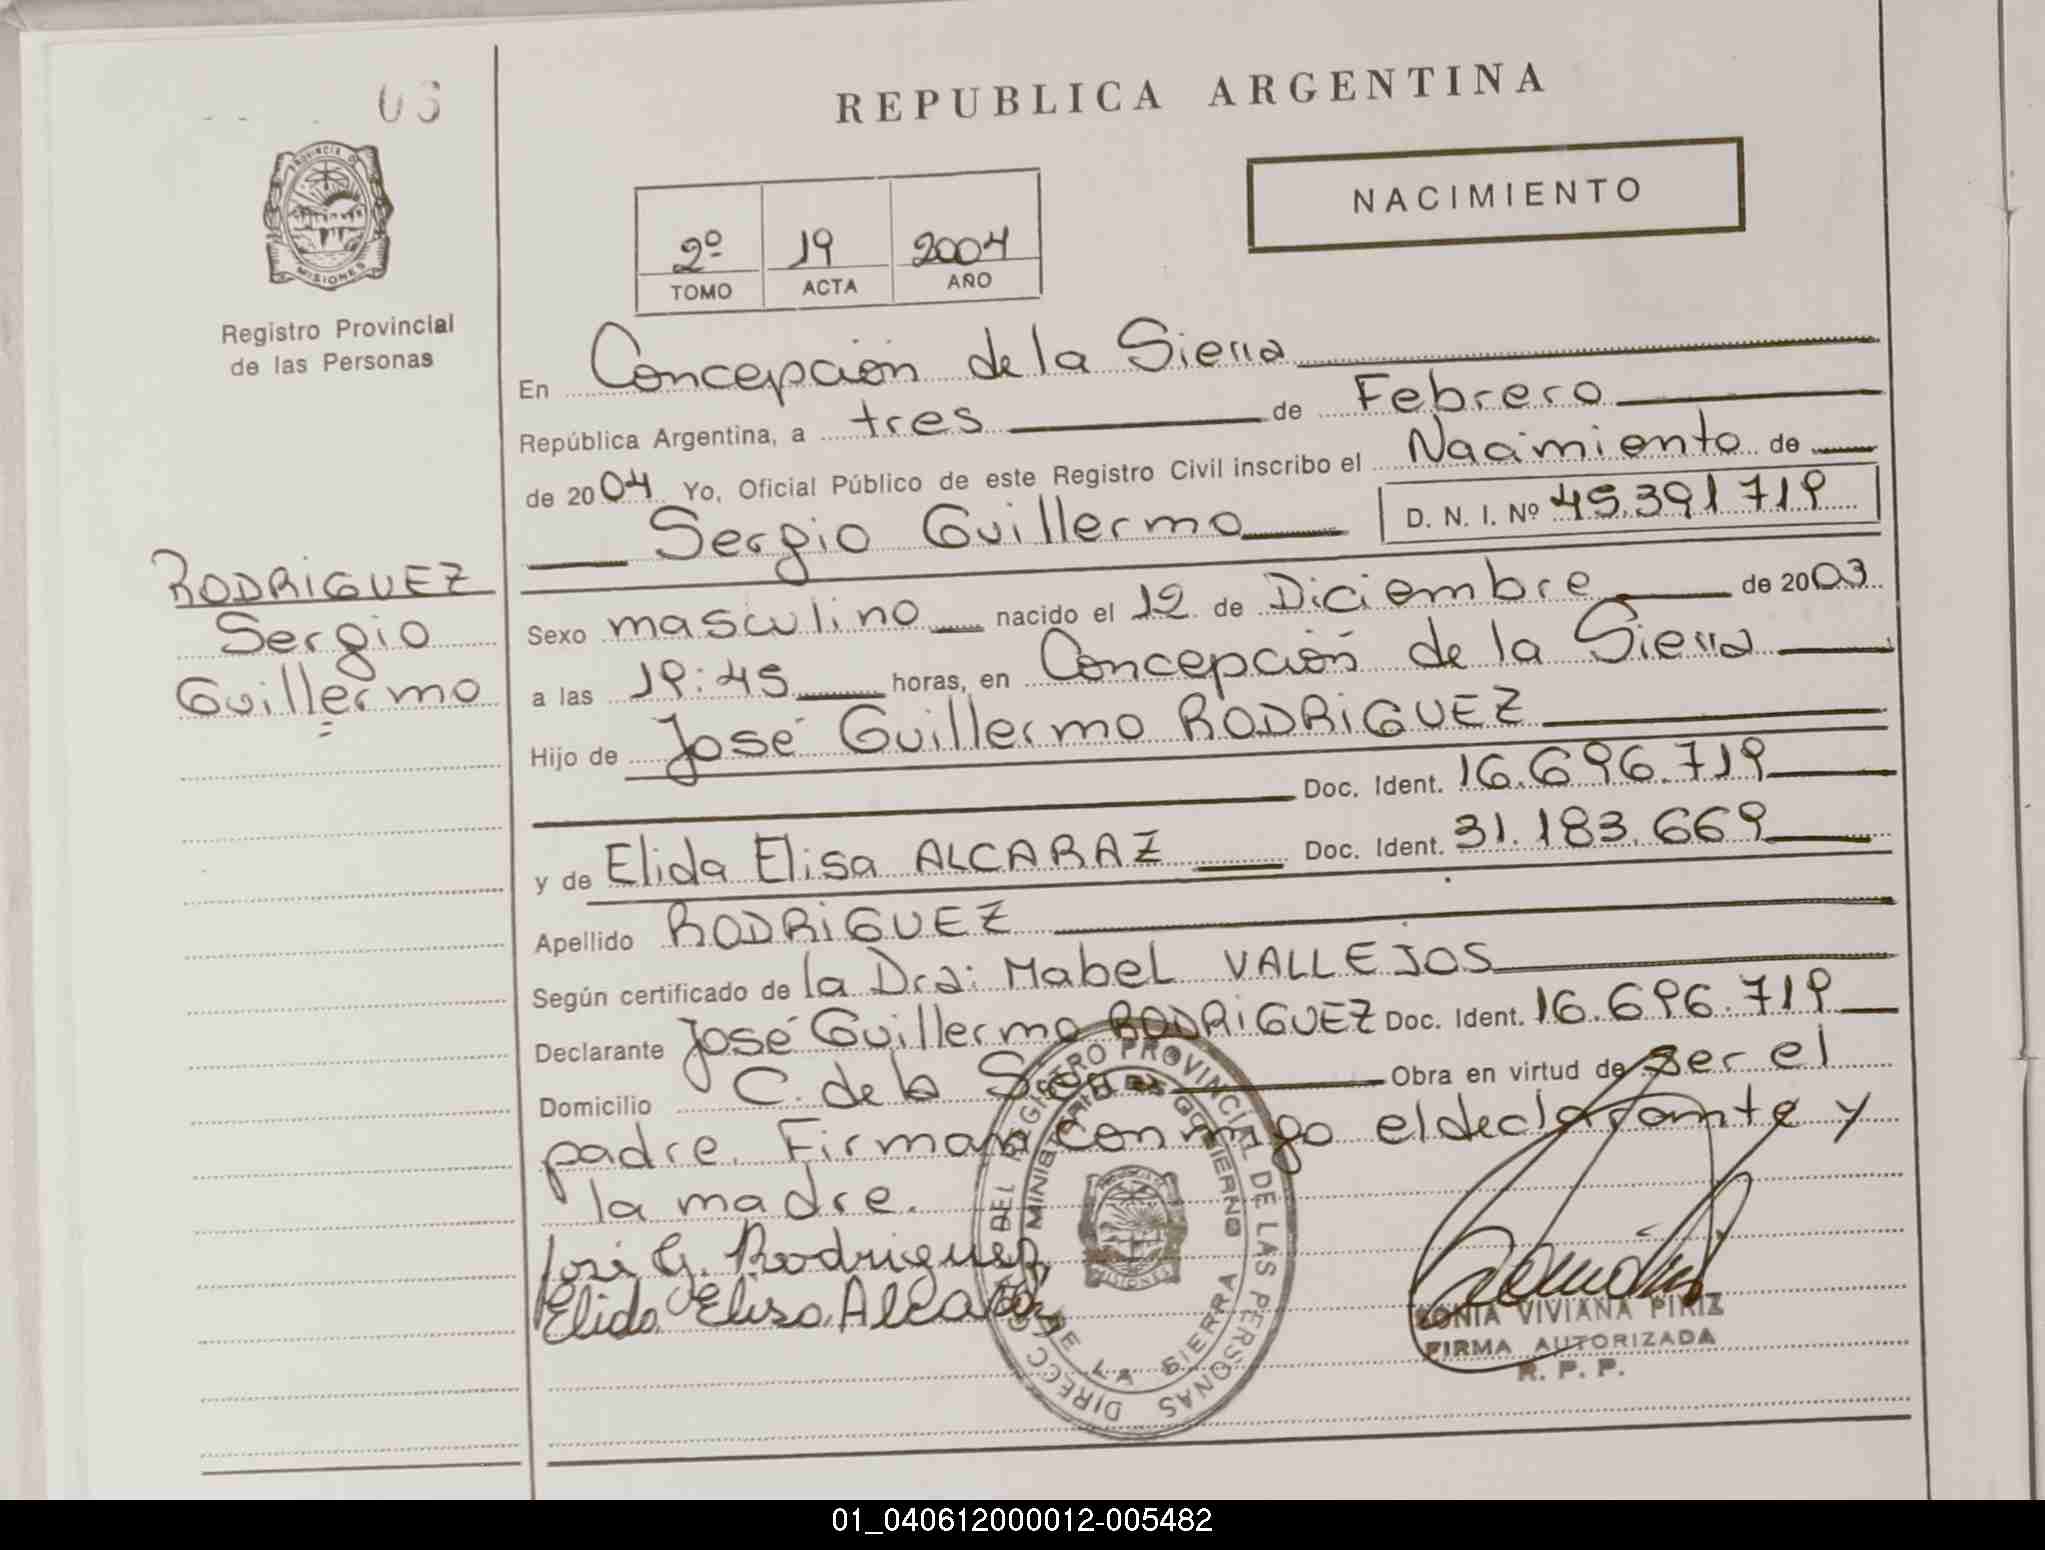 03
PROVINCIA DE
MISIONES
Registro Provincial
de las Personas
RODRIGUEZ
Sergio
Guillermo
REPUBLICA ARGENTINA
NACIMIENTO
2º 19 2004
TOMO ACTA AÑO
En Concepción de la Sierra
República Argentina, a tres de Febrero
de 2004 Yo, Oficial Público de este Registro Civil inscribo el Nacimiento de
Sergio Guillermo D. N. I. Nº 45.391719
Sexo masculino nacido el 12 de Diciembre de 2003
a las 19:45 horas, en Concepción de la Sierra
Hijo de José Guillermo RODRIGUEZ
Doc. Ident. 16.696.719
y de Elida Elisa ALCARAZ Doc. Ident. 31.183.669
Apellido RODRIGUEZ
Según certificado de la Dra: Mabel VALLEJOS
Declarante José Guillermo RODRIGUEZ Doc. Ident. 16.696.719
Domicilio C. de la Sierra Obra en virtud de ser el
padre. Firman conmigo el declarante y
la madre.
José G. Rodriguez
Elida Elisa Alcaraz
DIRECC DEL REGISTRO PROVINCIAL DE LAS PERSONAS
MINISTERIO DE GOBIERNO
DE LA SIERRA
MISIONES
SONIA VIVIANA PIRIZ
FIRMA AUTORIZADA
R. P. P.
01_040612000012-005482